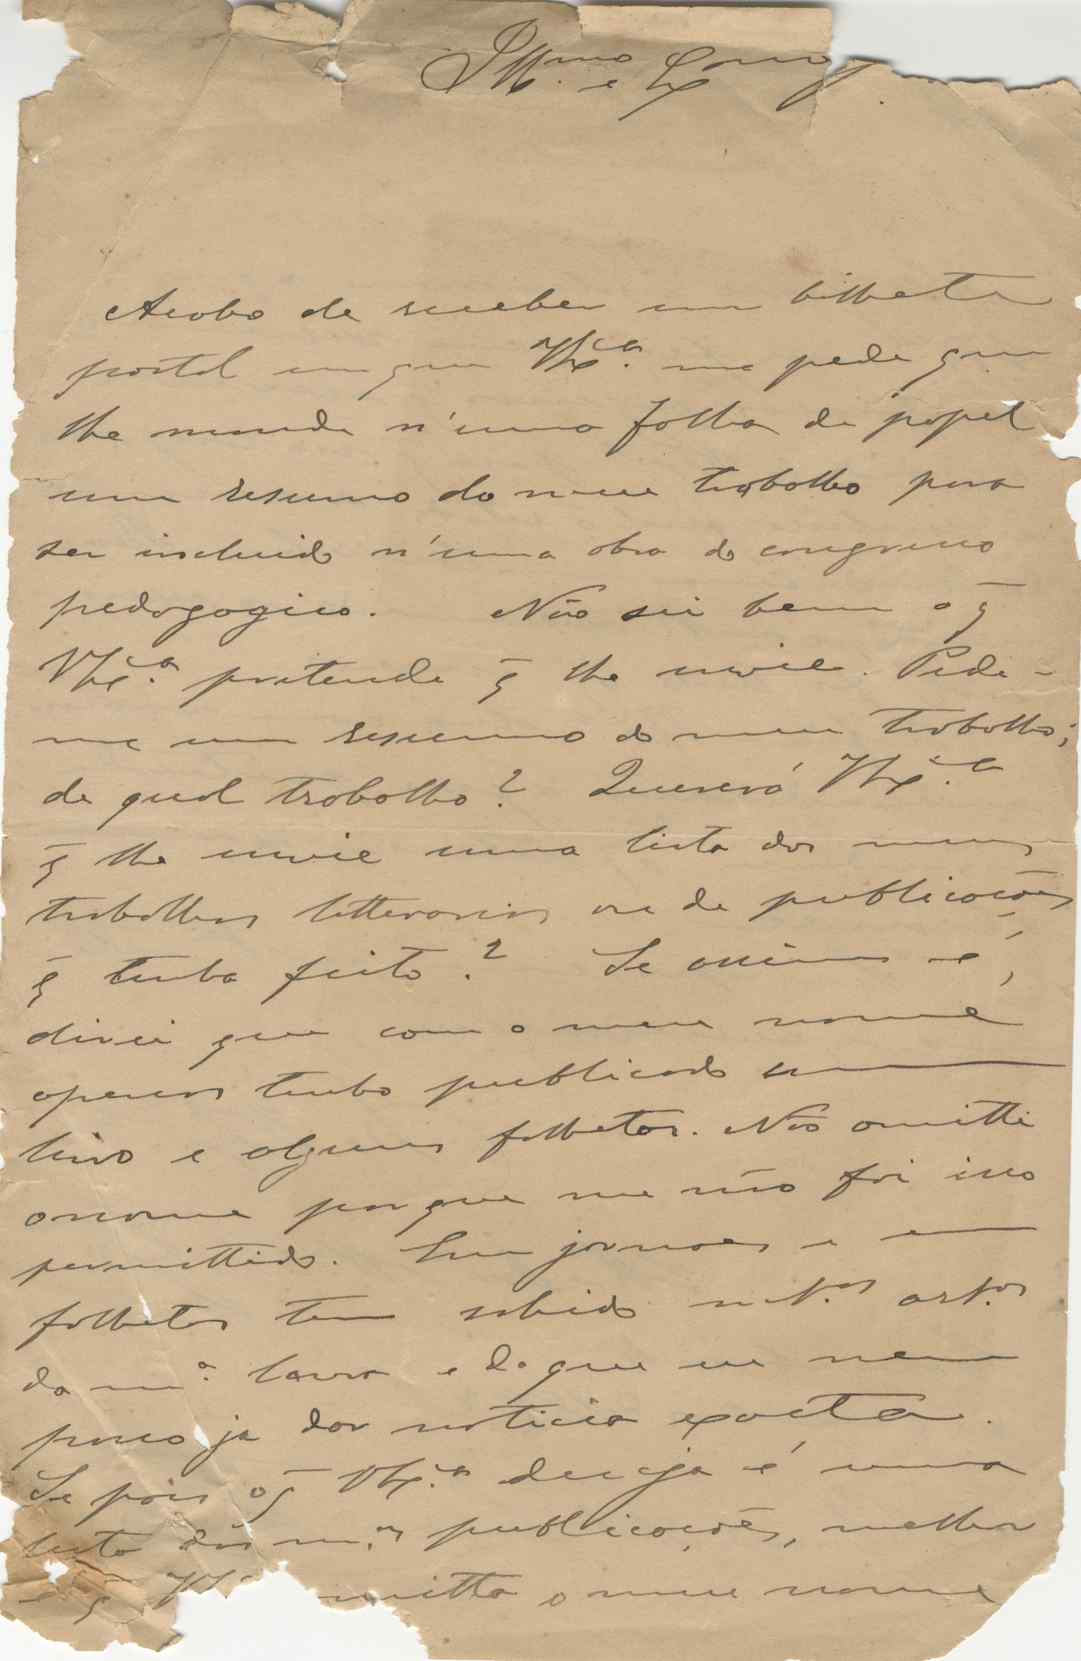 Illmo e Exmo
Acabo de receber um bilhete
postal em que VExcia. me pede que
lhe mande n'uma folha de papel
um resumo do meu trabalho para
ser incluido n'uma obra do congresso
pedagogico. Não sei bem o q̄
VExcia. pretende q̄ lhe envie. Pede-
me um resumo do meu trabalho;
de qual trabalho? Quererá VExcia.
q̄ lhe envie uma lista dos meus
trabalhos litterarios ou de publicacões
q̄ tenha feito? Se assim é,
direi que com o meu nome
apenas tenho publicado um
livro e alguns folhetos. Não omitti
o nome porque me não foi isso
permittido. Em jornaes e em
folhetos tem sahido mtos. artos.
da ma. lavra e de que eu nem
posso ja dar noticia exacta.
Se pois o q̄ VExa. deseja é uma
lista das mas. publicacões, melhor
é q̄ omitta o meu nome